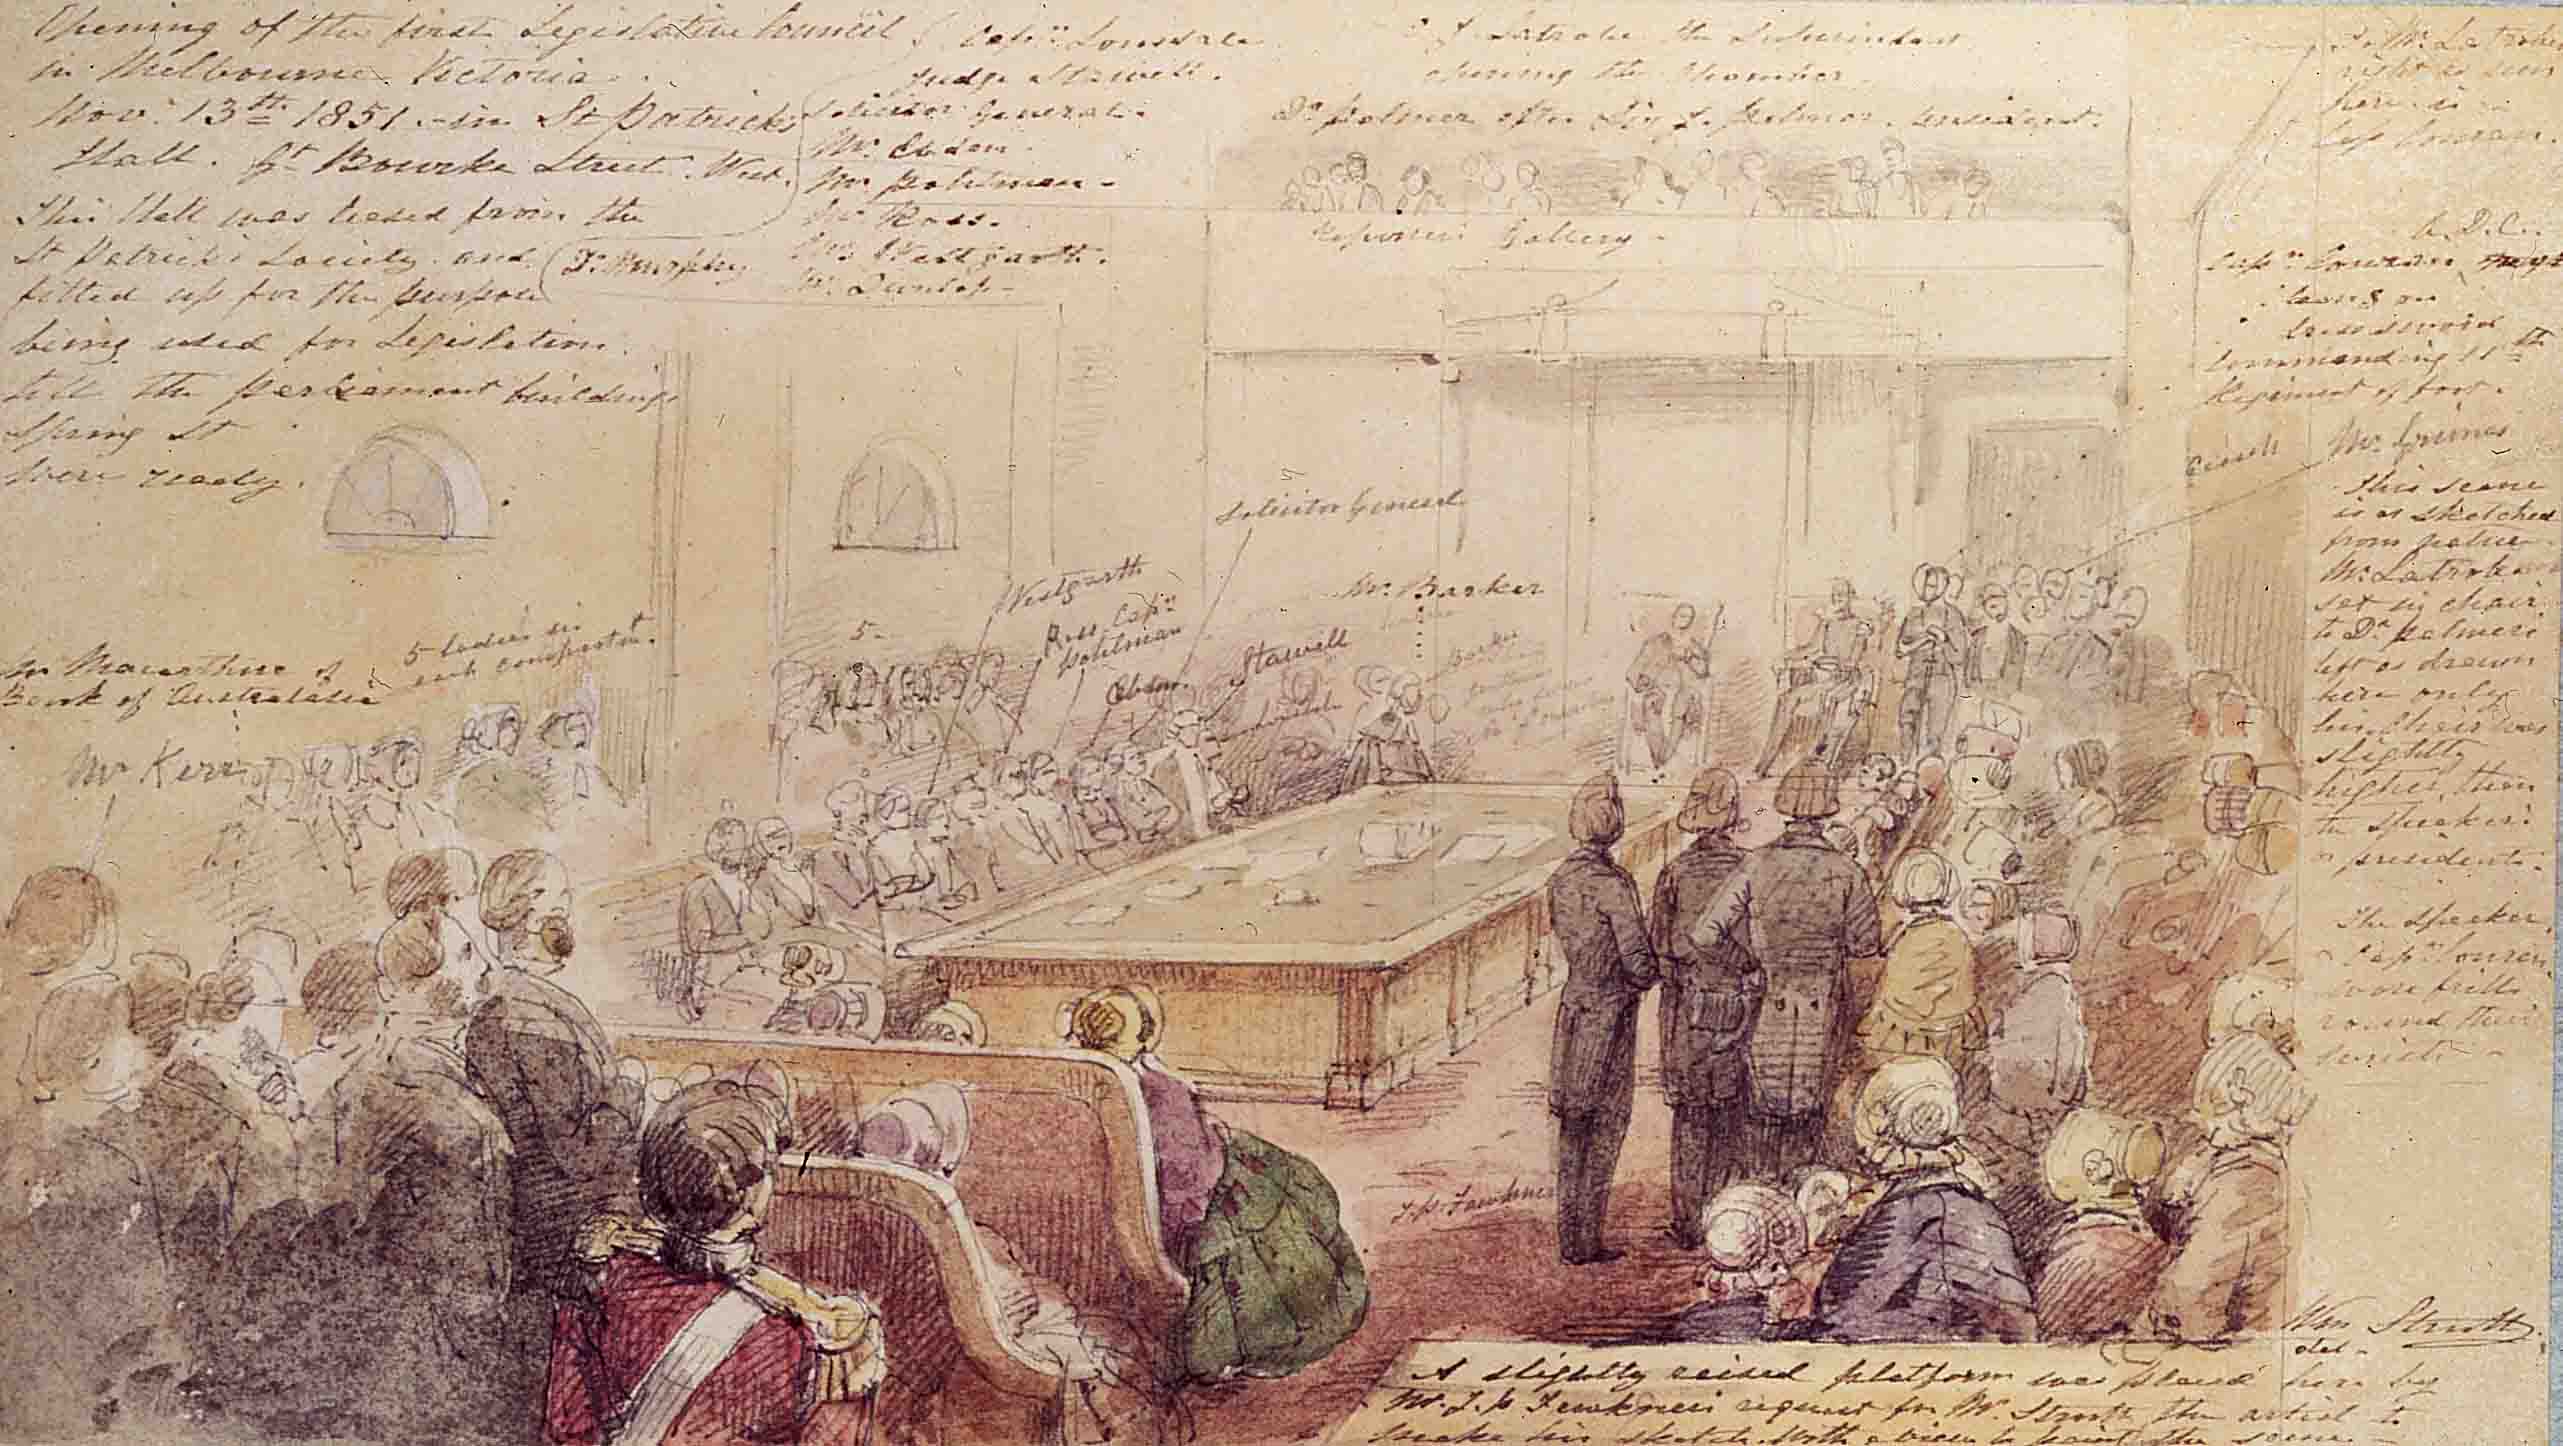 Opening of the first Legislative Council
in Melbourne Victoria.
Nov: 13th 1851 - in St Patricks
Hall. Gt Bourke Street West.
This Hall was leased from the
St Patrick's Society and
fitted up for the purpose
being used for Legislation
till the parliament buildings
Spring St
were ready.
Capn Lonsdale
Judge Stawell.
Solicitor General.
Mr. Ebden
Mr Pohlman -
Mr Ross.
Mr. Westgarth.
Mr. Dunlop -
Dr Murphy
Latrobe the Superintendent
opening the Chamber.
Dr palmer after Sir J. palmer. president.
Reporters Gallery -
To Mr. Latrobes
right as seen
here is
A. D. C.
leaning on
commanding 11th
Regiment of foot.
couch
Mr Grimes
This scene
is as sketched
from
Mr. Latrobe
sat in chair
to Dr palmers
left as drawn
here only
his chair was
slightly
higher than
the speakers
or presidents.
The speaker
wore frills
round their
wrists -
Solicitor General
Westgarth
Ross Capn
Pohlman
Ebden.
Stawell
Mr. Barker
Barker
5 -
5 ladies in
each compartmt.
Mr Macarthur of
Bank of Australasia
Mr Kerr
J. P. Fawkner
Wm Strutt
del -
A slightly raised platform was placed here by
Mr. J. P. Fawkner's request for Mr. Strutt the artist to
make his sketch with a view to paint the scene -